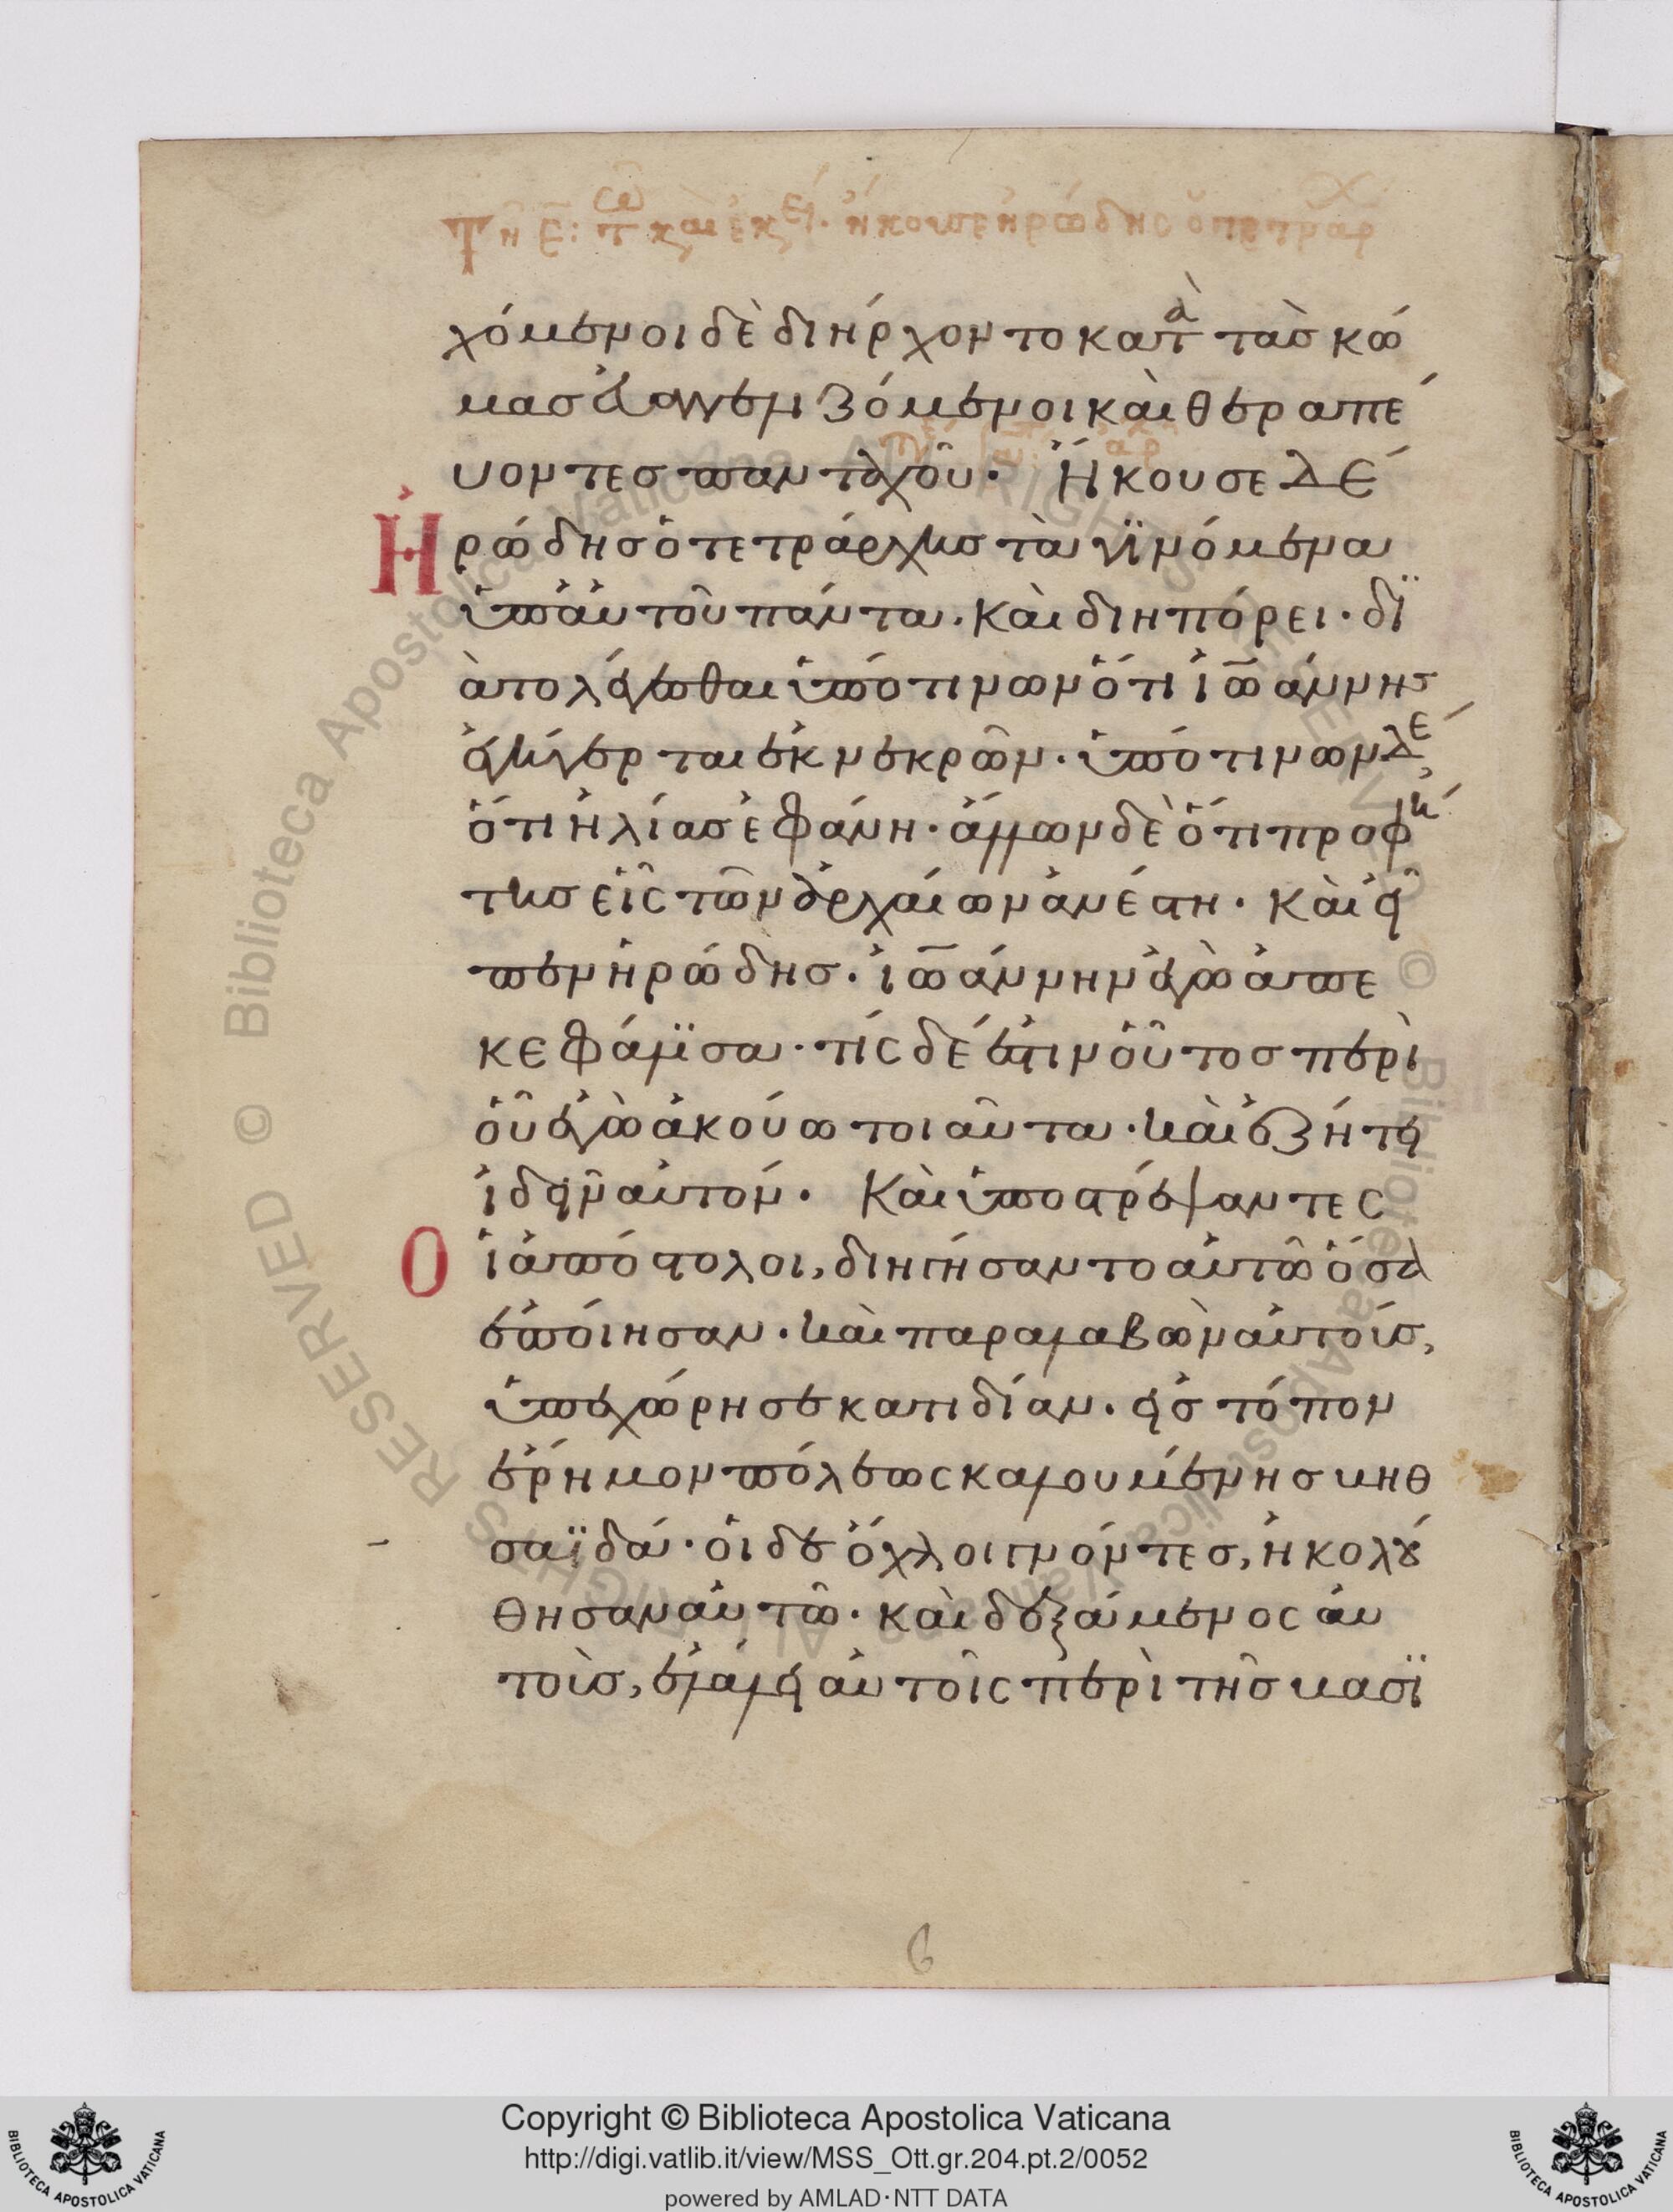 Τῆ ε: τω καιρω εκει· ἤκουσεν ἡρώδης ὁ τετραρχ
χόμενοι δὲ διήρχοντο κατὰ τὰς κώ
μας ἐυαγγελιζόμενοι καὶ θεραπέ
υοντες πανταχοῦ· Ἤκουσε δέ
Ἡρώδης ὁ τετράρχης τὰ γϊνόμενα
ὑπ' ἀυτοῦ πάντα. Καὶ διηπόρει· δϊ
ὰ το λέγεσθαι ὑπό τινων ὅτι ἰωάννης
ἐγήγερται ἐκ νεκρῶν· ὑπό τινων δέ,
ὅτι ἡλίας ἐφάνη· ἄλλων δὲ ὅτι προφή
της εἷς τῶν ἀρχαίων ἀνέστη· Καὶ εἶ
πεν ἡρώδης· ἰωάννην ἐγὼ ἀπε
κεφάλϊσα· τίς δέ ἐστιν οὗτος περὶ
οὗ ἐγὼ ἀκούω τοιαῦτα· καὶ ἐζήτει
ἰδεῖν ἀυτόν· Καὶ ὑποστρέψαντες
Οἱ ἀπόστολοι, διηγήσαντο ἀυτῶ ὅσα
ἐποίησαν· καὶ παραλαβὼν ἀυτούς,
ὑπεχώρησε κατιδίαν· εἰς τόπον
ἔρημον πόλεως καλουμένης βηθ
σαϊδά· οἱ δε ὄχλοι γνόντες, ἠκολού
θησαν ἀυτῶ· καὶ δεξάμενος ἀυ
τοὺς, ἐλάλει ἀυτοῖς περὶ τῆς βασϊ
6
Copyright © Biblioteca Apostolica Vaticana
http://digi.vatlib.it/view/MSS_Ott.gr.204.pt.2/0052
powered by AMLAD·NTT DATA
BIBLIOTECA APOSTOLICA VATICANA
BIBLIOTECA APOSTOLICA VATICANA